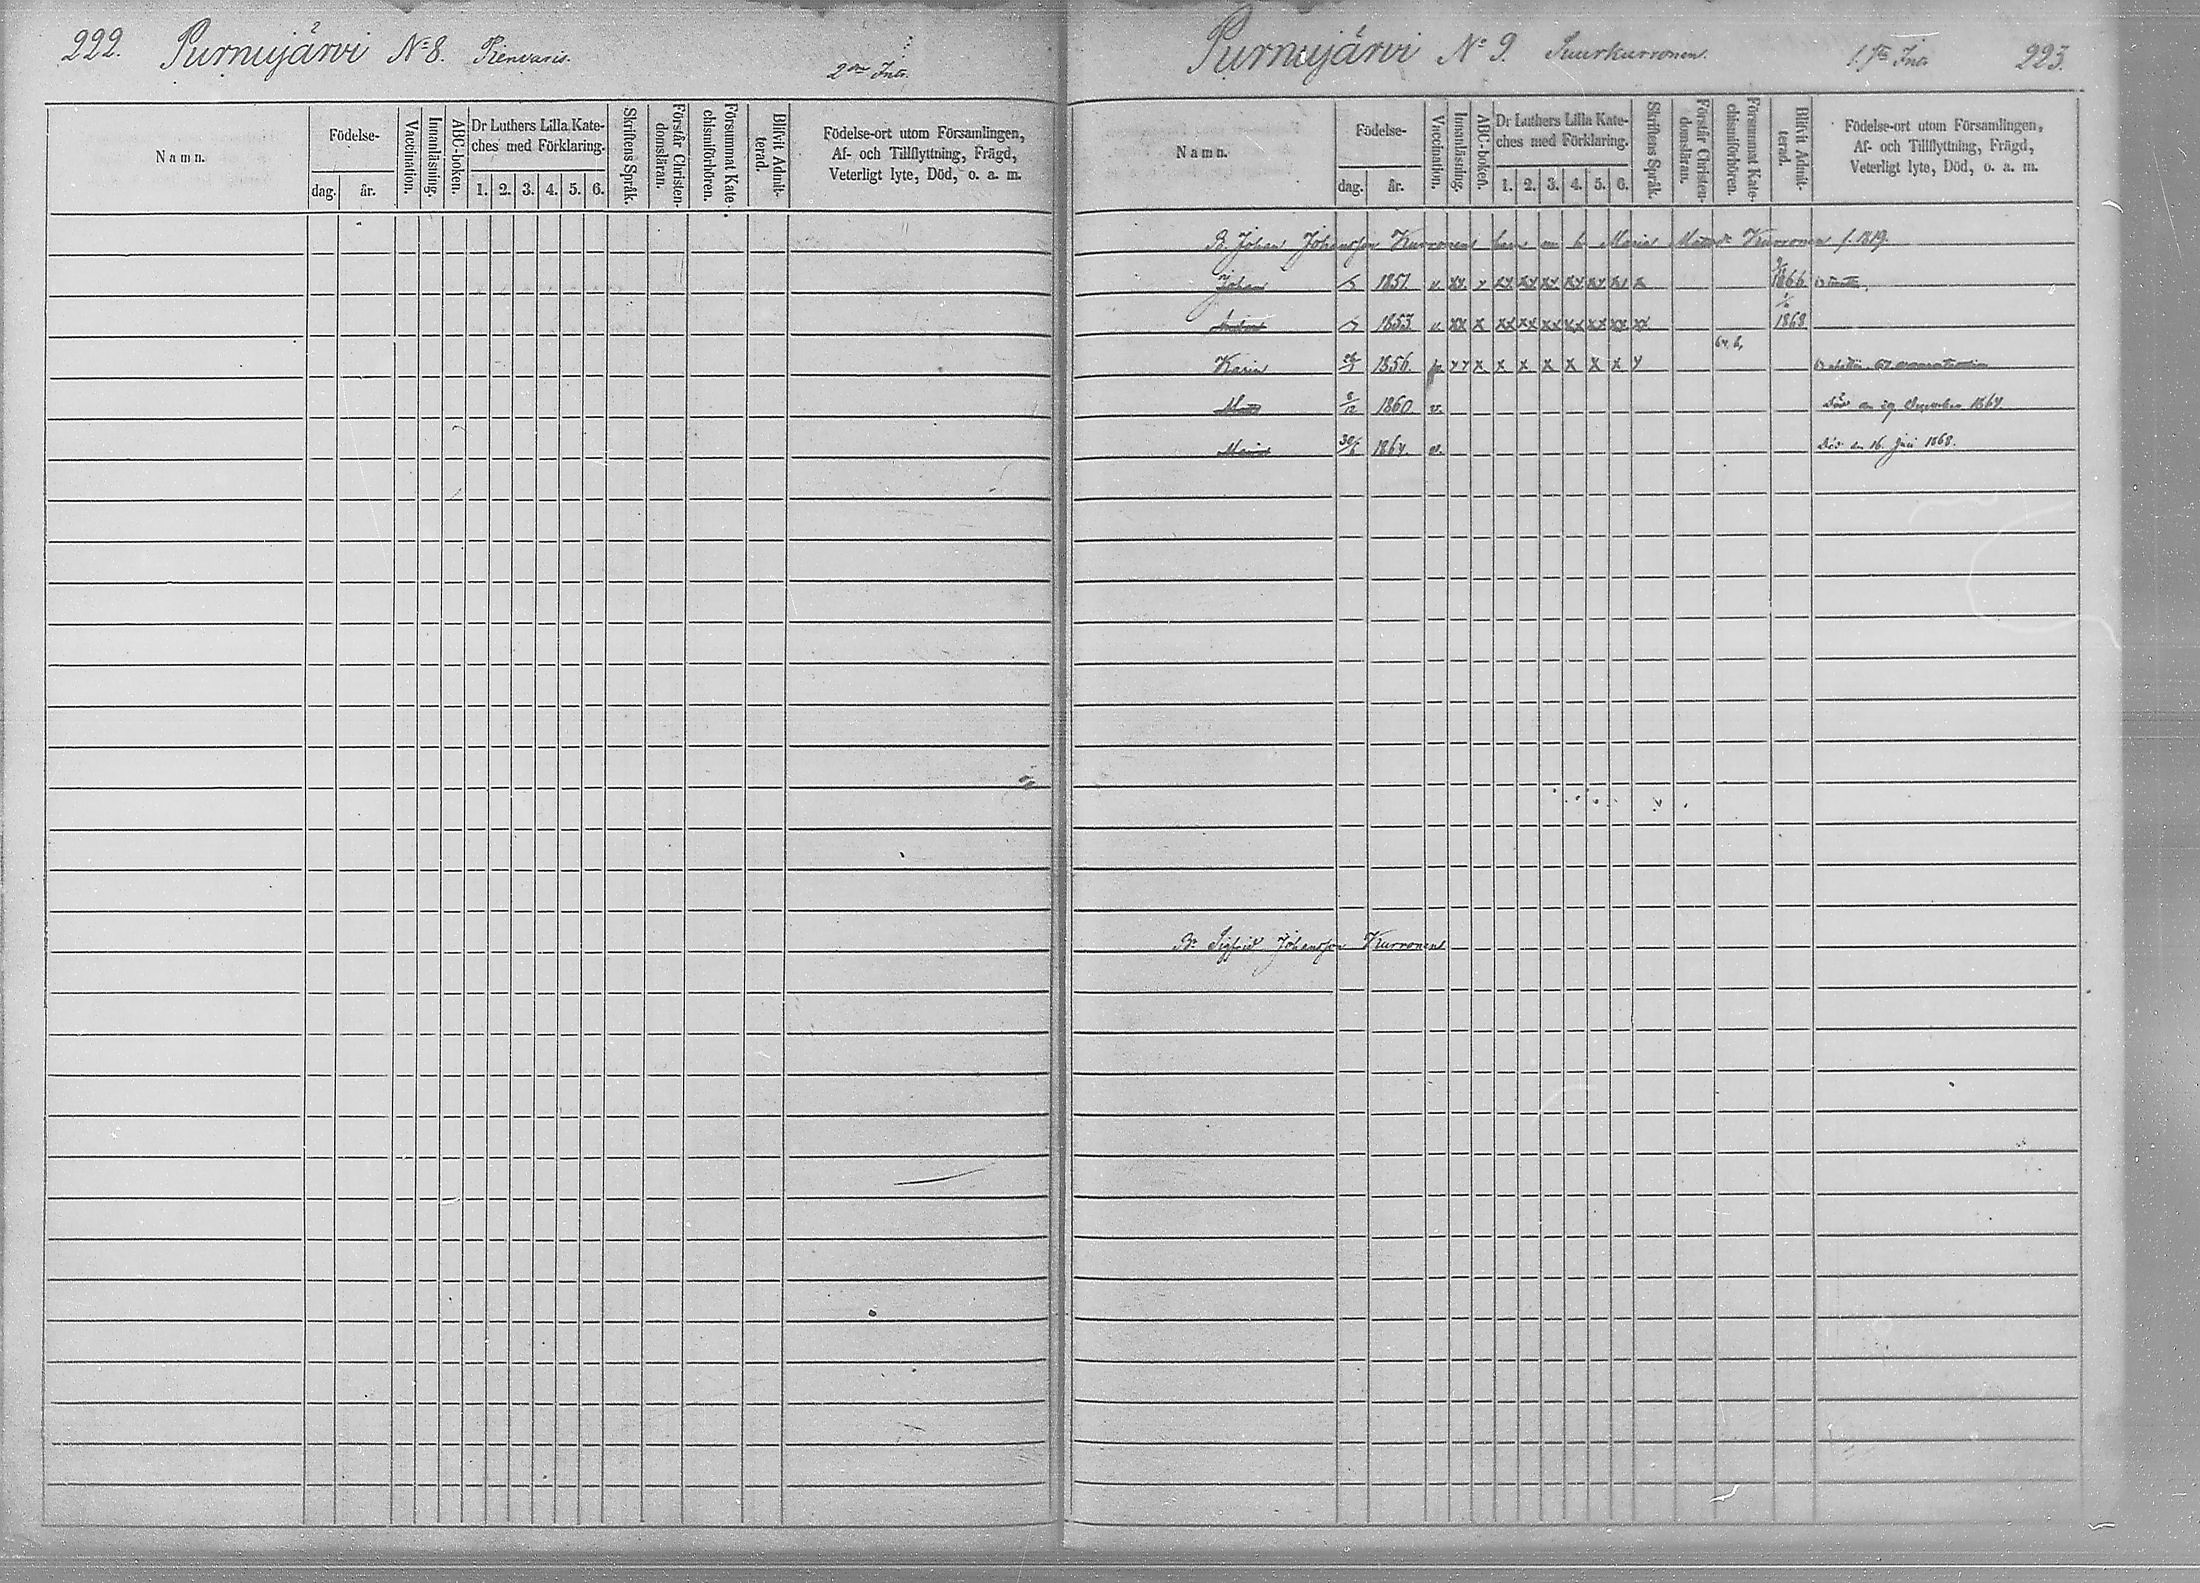 222. Purnujärvi No 8. Pienvaris. 2dra Int.
Namn.
Födelse-
dag.
år.
Vaccination.
Innanläsning.
ABC-boken.
Dr Luthers Lilla Kate-
ches med Förklaring.
1. 2. 3. 4. 5. 6.
Skriftens Språk.
Förstår Christen-
domsläran.
Försummat Kate-
chismiförhören.
Blifvit Admit-
terad.
Födelse-ort utom Församlingen,
Af- och Tillflyttning, Frägd,
Veterligt lyte, Död, o. a. m.
Purnujärvi No 9. Suurkurronen. 1sta Int. 223.
Namn.
Födelse-
dag.
år.
Vaccination.
Innanläsning.
ABC-boken.
Dr Luthers Lilla Kate-
ches med Förklaring.
1. 2. 3. 4. 5. 6.
Skriftens Språk.
Förstår Christen-
domsläran.
Försummat Kate-
chismiförhören.
Blifvit Admit-
terad.
Födelse-ort utom Församlingen,
Af- och Tillflyttning, Frägd,
Veterligt lyte, Död, o. a. m.
B. Johan Johansson Kurronens Maria Kurronen f. 1819.
Johan 1851 v xx x xx xx xx xx xx xx x 1866
1853 v xx x xx xx xx xx xx xx xx 1868
Karin 1856 x x x x x x x
Matts 8/12 1860 v. Död den 29 December 1867.
Maria 30/6 1864 v. Död den 16 Juni 1868.
Br Sigfrid Johansson Kurronens